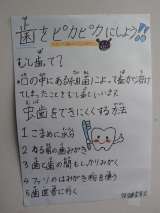 歯をピカピカにしよう!!
むし歯って?
口の中にある細菌によって歯が溶け
てしまったことをむし歯という。
虫歯をできにくくする方法
1 こまめに水分
2 カを最の歯みがき
3 歯と歯の間もしっかりみがく
4 フッソのはみがき粉を使う
5 歯医者に行く
保健委員会